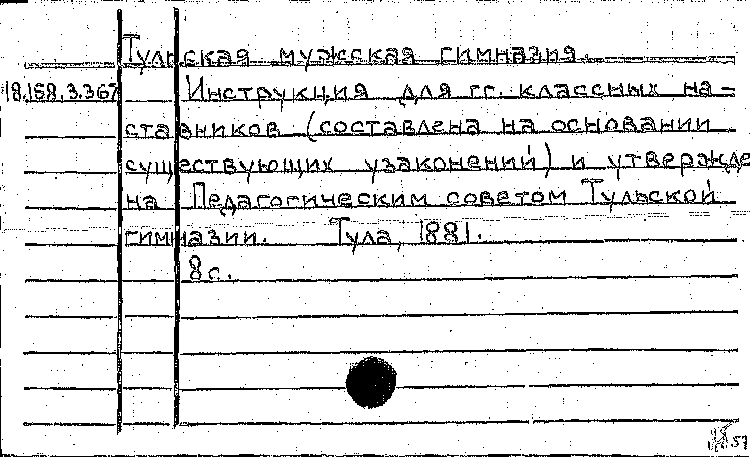 Тульская мужская гимназия.
18.158.3.367 Инструкция для гг. классных на-
ставников (составлена на основании
существующих узаконений) и утвержде
на Педагогическим советом Тульской
гимназии. Тула, 1881.
8 с.
57